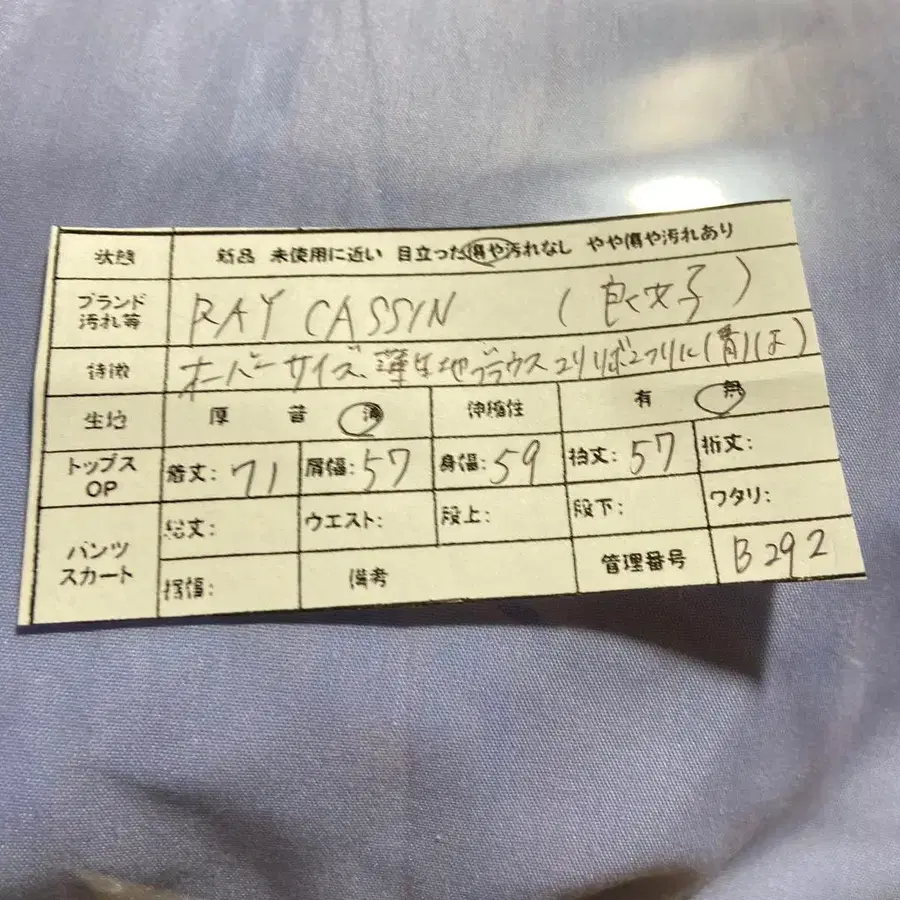 状態 新品 未使用に近い 目立った傷や汚れなし やや傷や汚れあり
ブランド RAY CASSIN
汚れ等
特徴 オーバーサイズ、薄生地ブラウス
生地 厚 普 薄 伸縮性 有 無
トップス 着丈: 71 肩幅: 57 身幅: 59 裆丈: 57 裄丈:
OP
総丈: ウエスト: 股上: 股下: ワタリ:
パンツ
スカート
裾幅: 備考 管理番号 B292